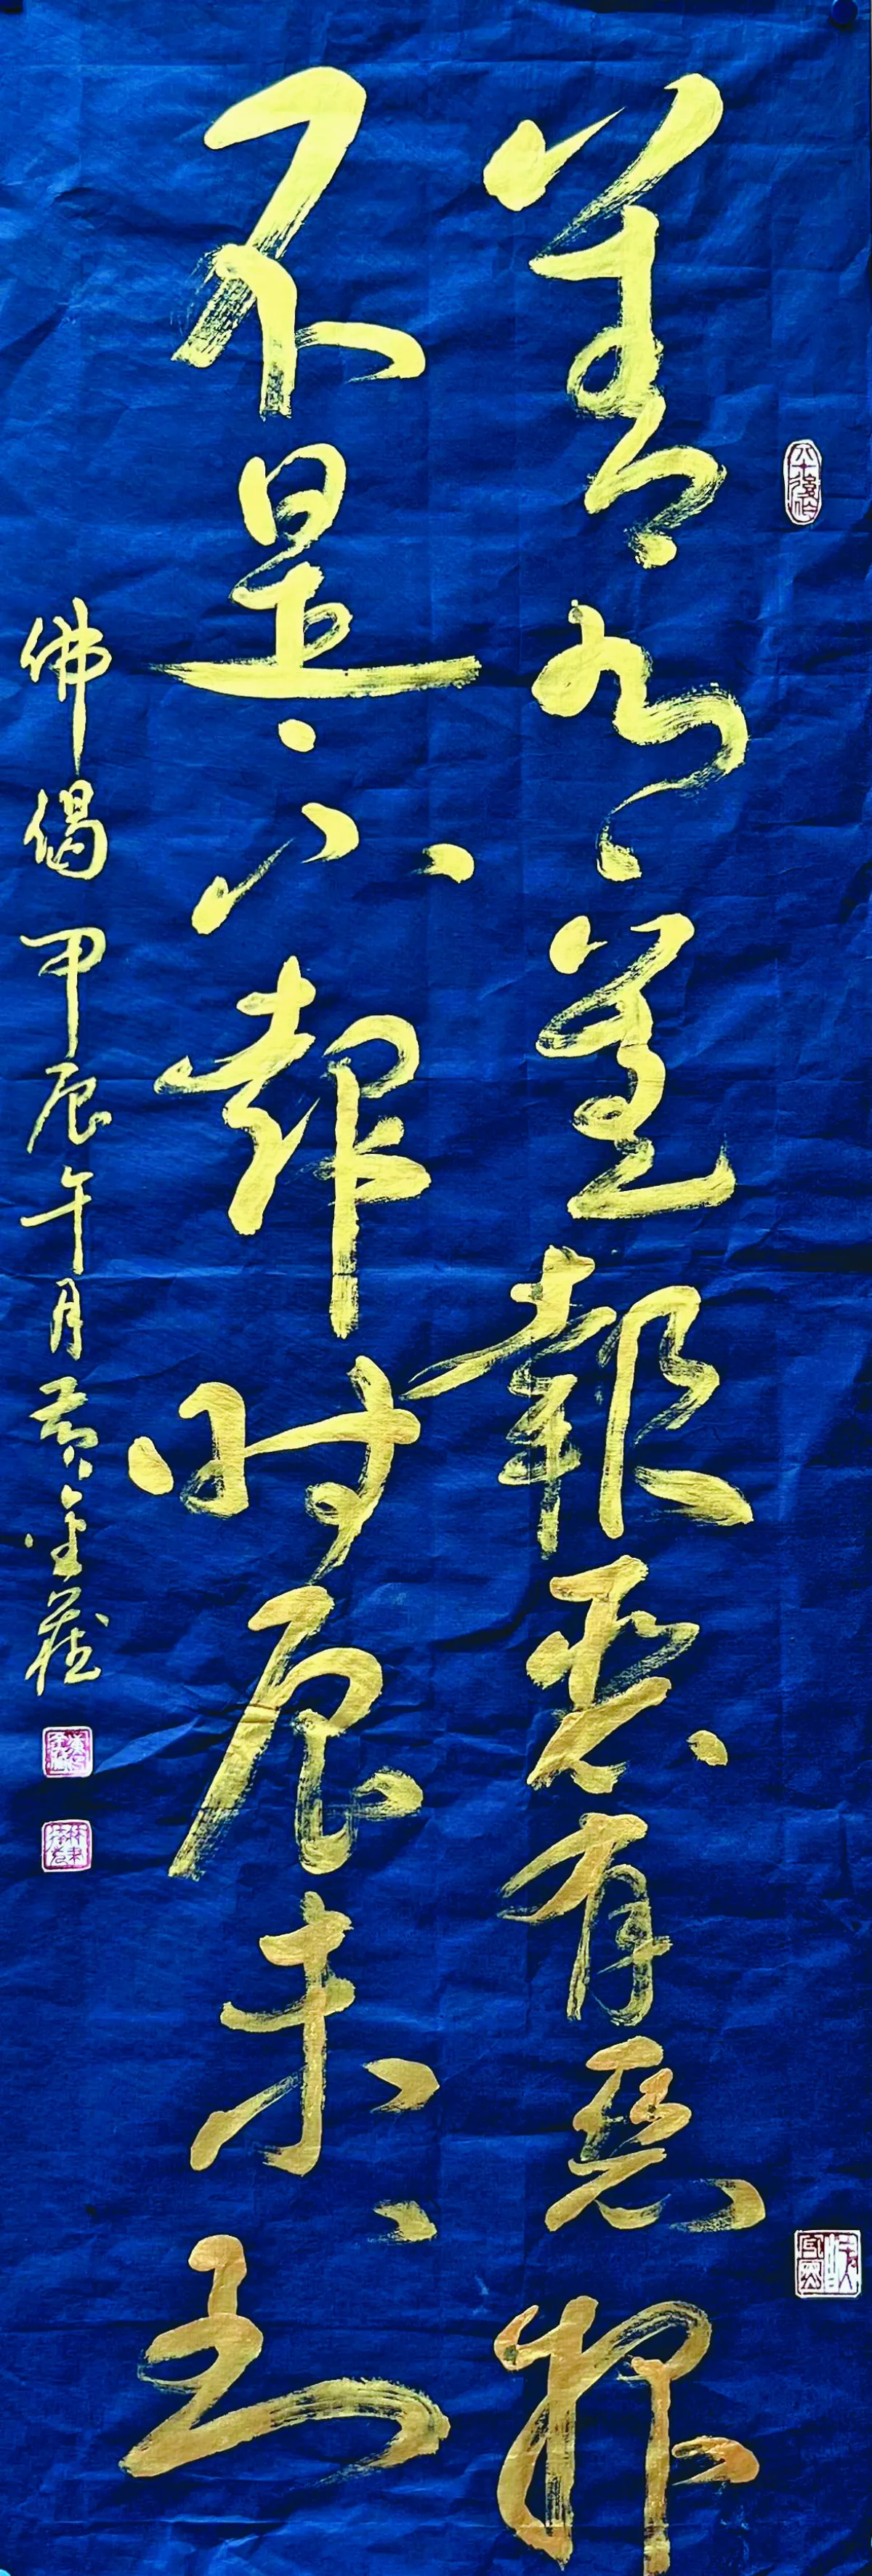 善有善報惡有惡报
不是不報时辰未到
佛偈 甲辰午月 黄金